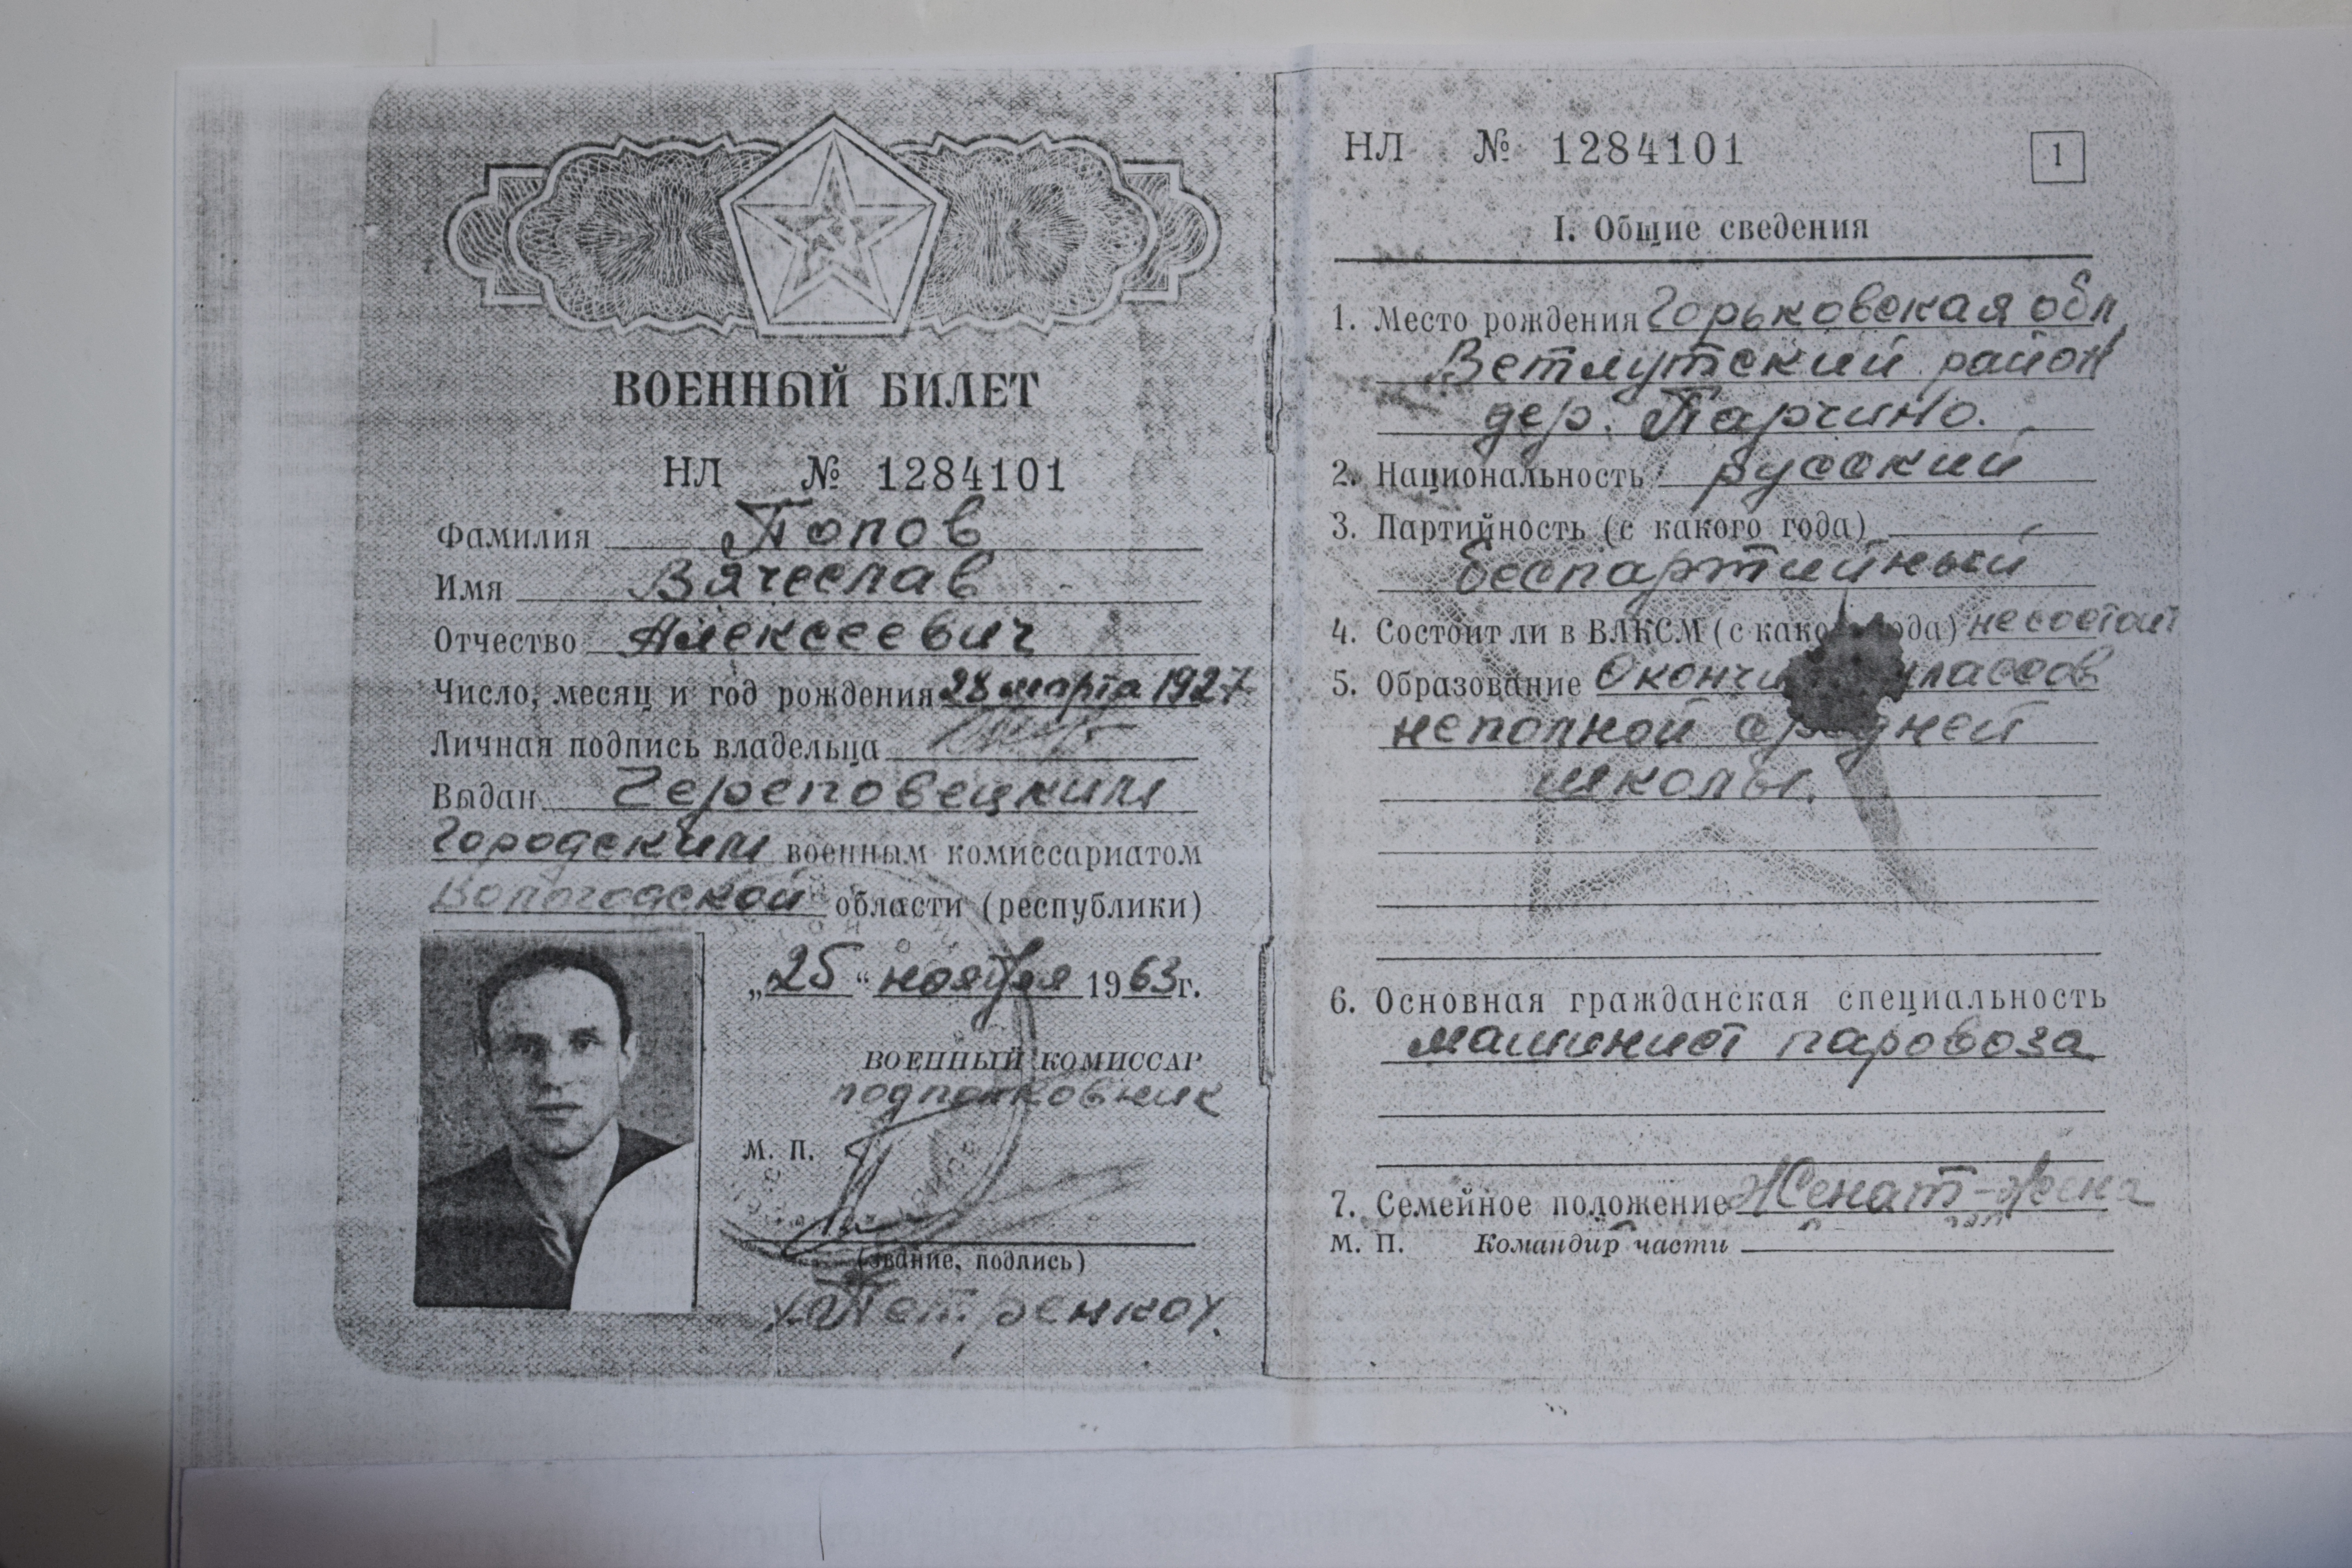 ВОЕННЫЙ БИЛЕТ
НЛ № 1284101
Фамилия Попов
Имя Вячеслав
Отчество Алексеевич
Число, месяц и год рождения 28 марта 1927
Личная подпись владельца
Выдан Череповецким
Городским военным комиссариатом
Вологодской области (республики)
„25“ ноября 1963 г.
ВОЕННЫЙ КОМИССАР
подполковник
М. П.
(звание, подпись)
Петренко
НЛ № 1284101
1
I. Общие сведения
1. Место рождения Горьковская обл,
Ветлугский район
дер. Парчино.
2. Национальность русский
3. Партийность (с какого года)
беспартийный
4. Состоит ли в ВЛКСМ (с како ода) не состоит
5. Образование Окончи классов
неполной средней
школы.
6. Основная гражданская специальность
машинист паровоза
7. Семейное положение Женат - жена
М. П. Командир части